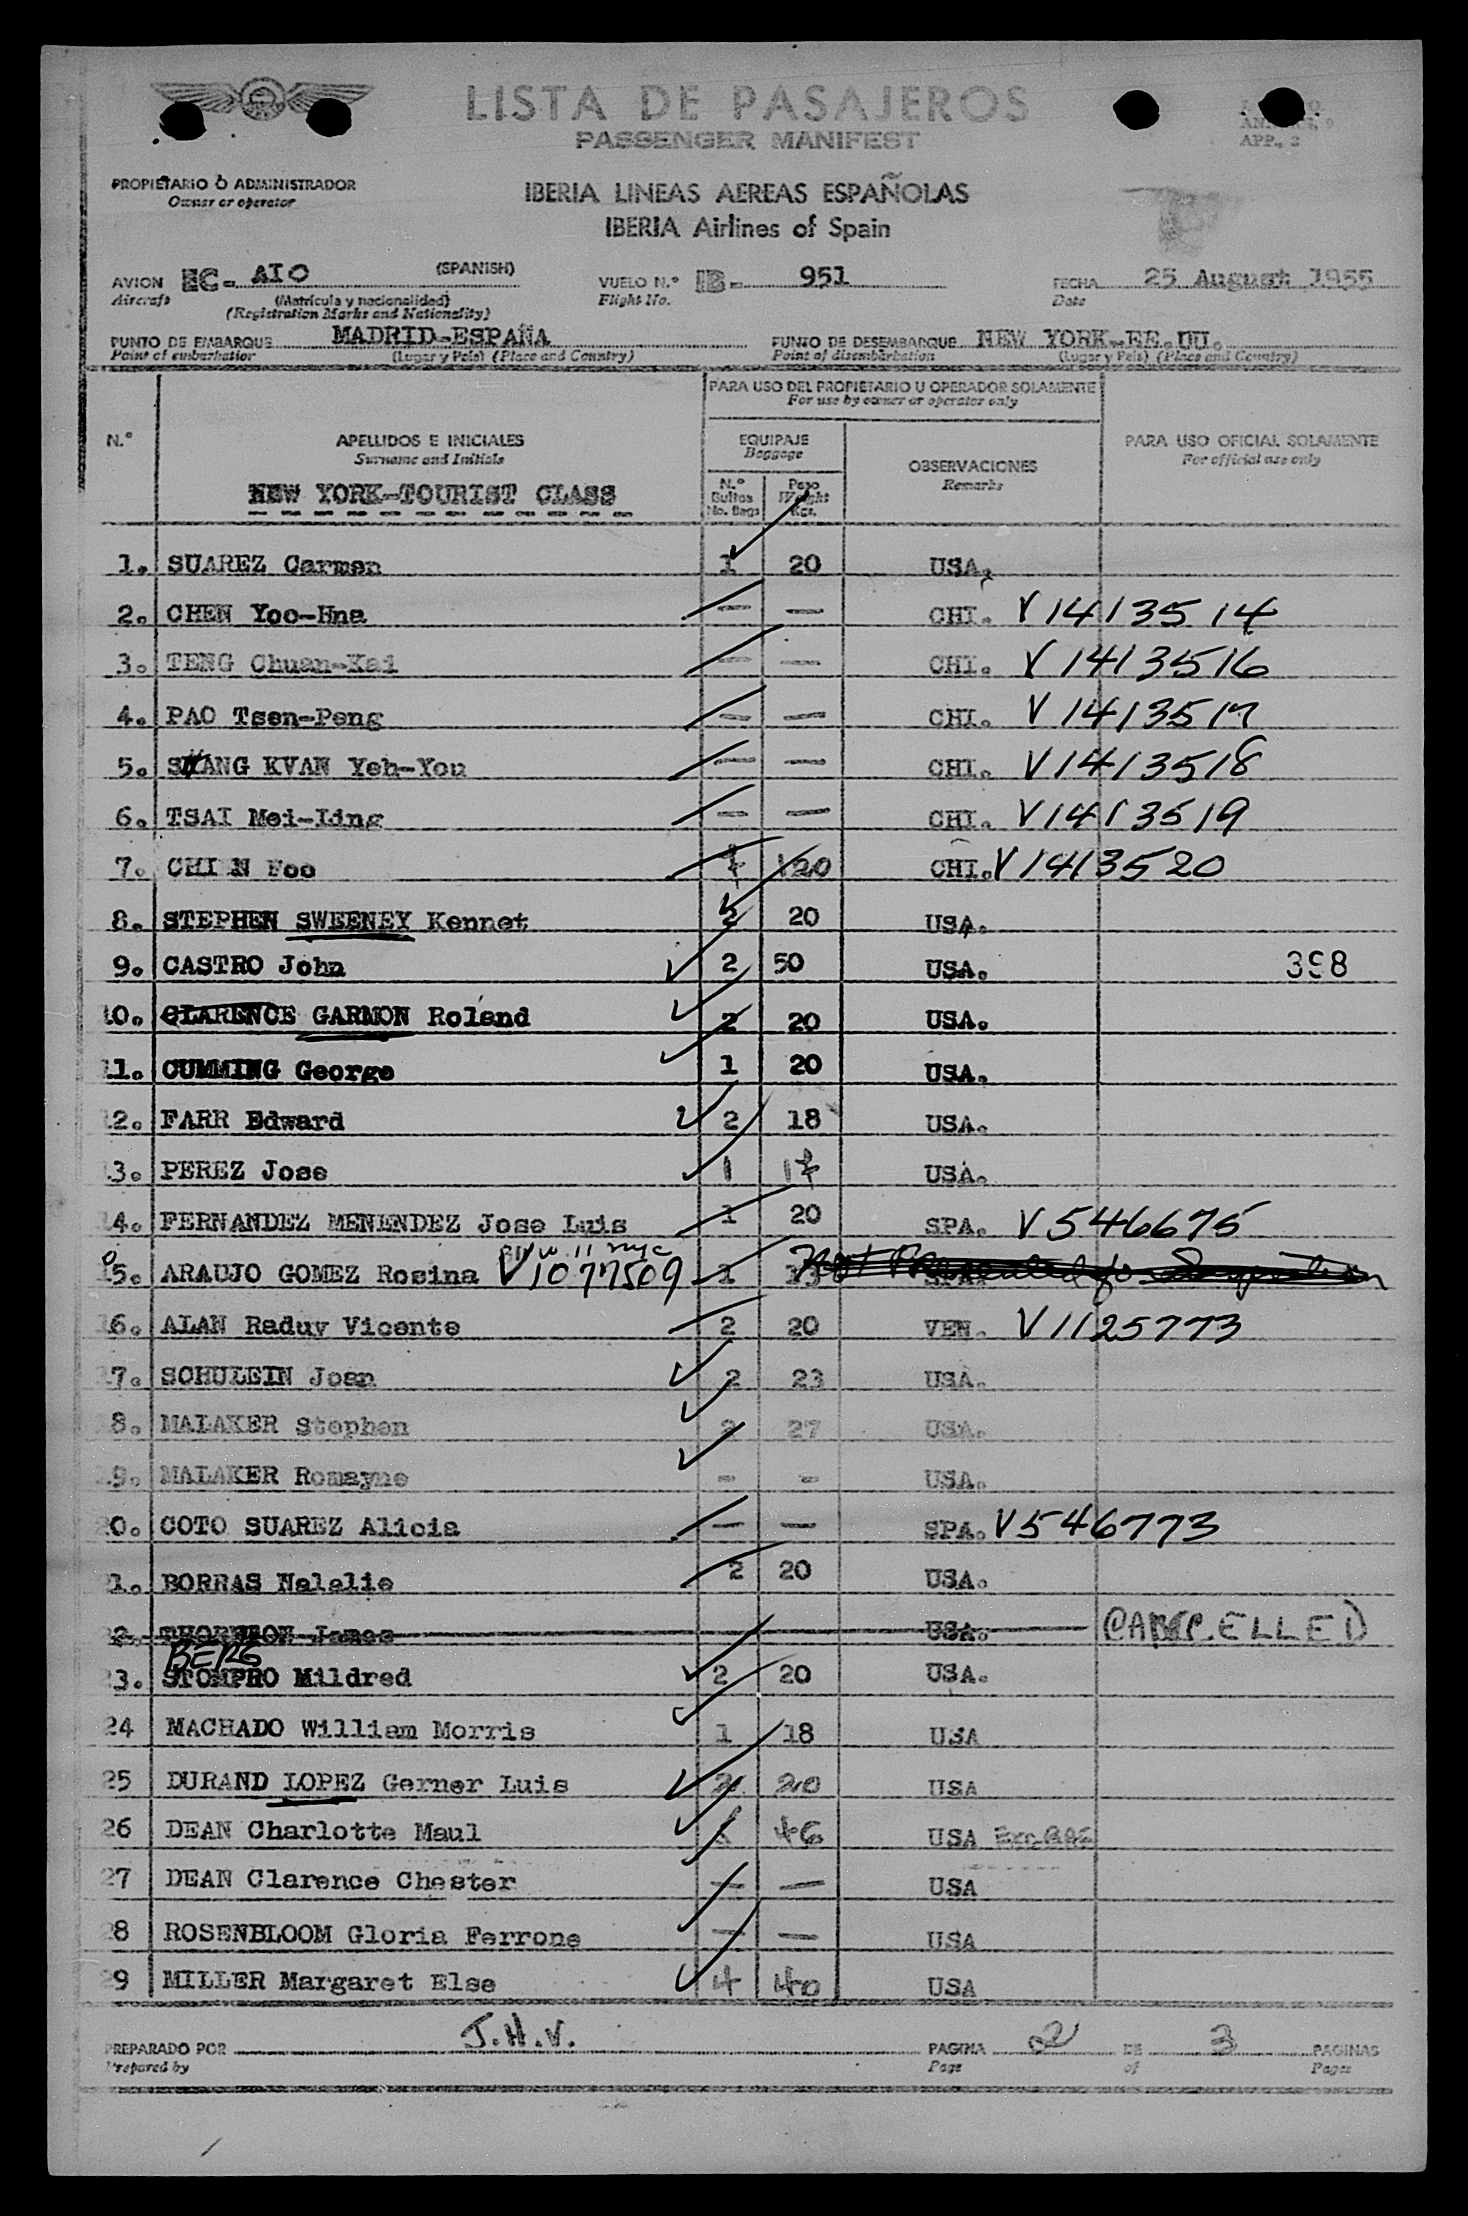 LISTA DE PASAJEROS
PASSENGER MANIFEST
APP. 2
PROPIETARIO Ó ADMINISTRADOR
Owner or operator
IBERIA LINEAS AEREAS ESPAÑOLAS
IBERIA Airlines of Spain
AVION EC- AIO (SPANISH) VUELO N.º IB- 951 FECHA 25 August 1955
Aircraft (Matrícula y nacionalidad) Flight No. Date
(Registration Marks and Nationality)
PUNTO DE EMBARQUE MADRID-ESPAÑA PUNTO DE DESEMBARQUE NEW YORK-EE.UU.
Point of embarkation (Lugar y País) (Place and Country) Point of disembarkation (Lugar y País) (Place and Country)
PARA USO DEL PROPIETARIO U OPERADOR SOLAMENTE
For use by owner or operator only
N.º APELLIDOS E INICIALES EQUIPAJE OBSERVACIONES PARA USO OFICIAL SOLAMENTE
Surname and Initials Baggage Remarks For official use only
NEW YORK-TOURIST CLASS N.º Bultos No. Bags Peso Weight Kgs.
1. SUAREZ Carmen 1 20 USA.
2. CHEN Yoo-Hna — — CHI. V1413514
3. TENG Chuan-Kai — — CHI. V1413516
4. PAO Tsen-Peng — — CHI. V1413517
5. SHANG KVAN Yeh-You — — CHI. V1413518
6. TSAI Mei-Ling — — CHI. V1413519
7. CHI N Foo 20 CHI. V1413520
8. STEPHEN SWEENEY Kennet 2 20 USA.
9. CASTRO John 2 50 USA. 398
10. CLARENCE GARMON Roland 2 20 USA.
11. CUMMING George 1 20 USA.
12. FARR Edward 2 18 USA.
13. PEREZ Jose 1 17 USA.
14. FERNANDEZ MENENDEZ Jose Luis 1 20 SPA. V546675
15. ARAUJO GOMEZ Rosina V1077509 1 Not Presented for Inspection
16. ALAN Raduy Vicente 2 20 VEN. V1125773
17. SCHULEIN Joan 2 23 USA.
18. MALAKER Stephen 2 27 USA.
19. MALAKER Romayne - - USA.
20. COTO SUAREZ Alicia — — SPA. V546773
21. BORRAS Nalalie 2 20 USA.
22. THORNTON James USA. CANCELLED
BERG
23. STOMPRO Mildred 2 20 USA.
24 MACHADO William Morris 1 18 USA
25 DURAND LOPEZ Gerner Luis 2 20 USA
26 DEAN Charlotte Maul 46 USA
27 DEAN Clarence Chester — — USA
28 ROSENBLOOM Gloria Ferrone — — USA
29 MILLER Margaret Else 4 40 USA
PREPARADO POR J.H.V. PAGINA 2 DE 3 PAGINAS
Prepared by Page of Pages